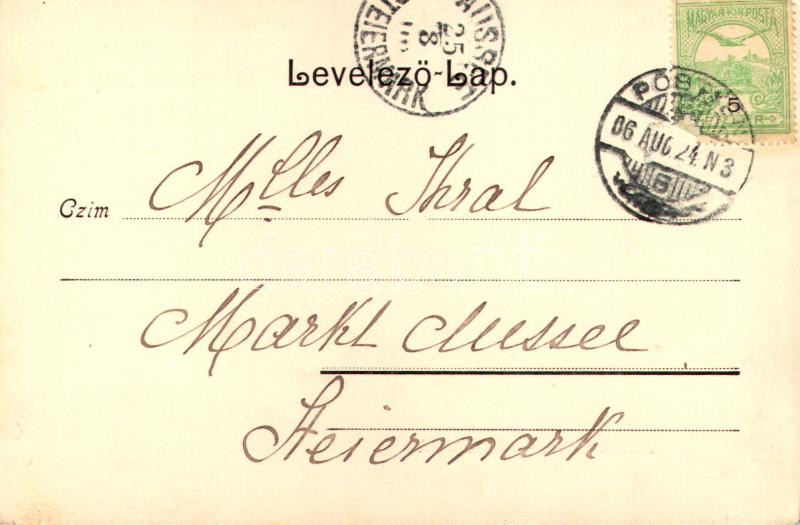 AUSSEE
25
8
STEIERMARK
MAGYAR KIR. POSTA
5
Levelező-Lap.
06 AUG. 24. N3
B
Czim Mlles Thral
Markt Aussee
Steiermark